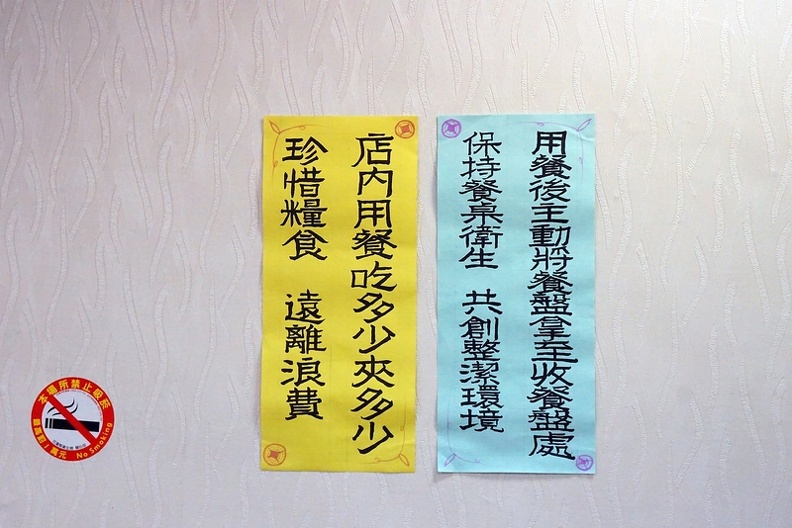 用餐後主動將餐盤拿至收餐盤處
保持餐桌衛生 共創整潔環境
店內用餐吃多少夾多少
珍惜糧食 遠離浪費
本場所禁止吸菸
No Smoking